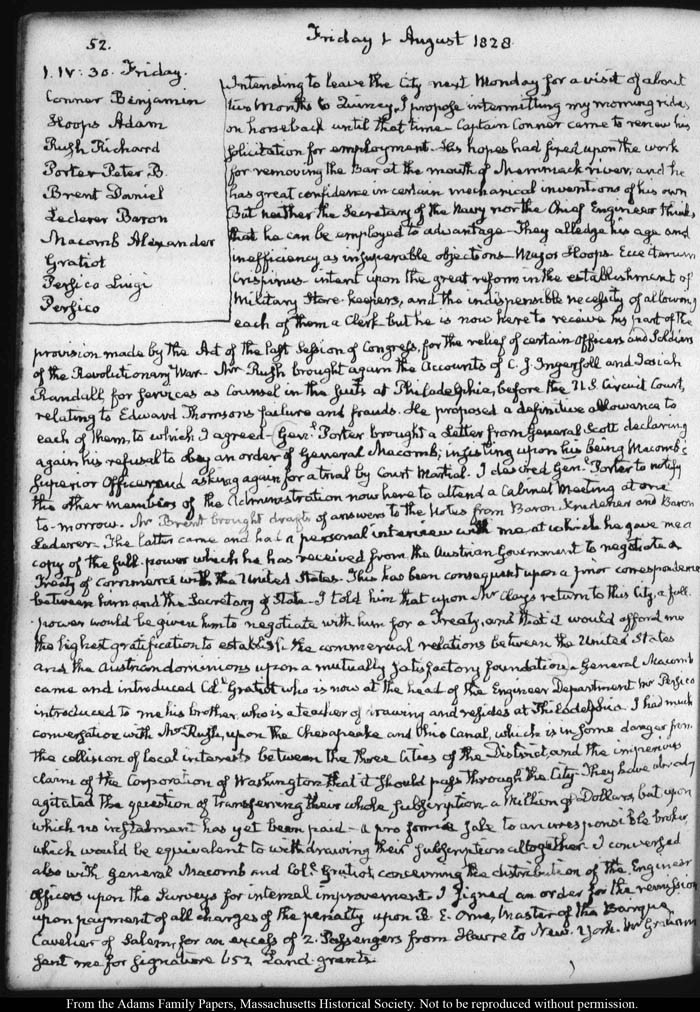 52.
Friday 1 August 1828.
1. IV: 30. Friday.
Conner Benjamin
Hoops Adam
Rush Richard
Porter Peter B.
Brent Daniel
Lederer Baron
Macomb Alexander
Gratiot
Persico Luigi
Persico
Intending to leave the City next Monday for a visit of about
two Months to Quincy, I propose intermitting my morning rides
on horseback until that time. Captain Conner came to renew his
solicitation for employment. His hopes had fixed upon the work
for removing the Bar at the mouth of Merrimack river, and he
has great confidence in certain mechanical inventions of his own
But neither the Secretary of the Navy nor the Chief Engineer think,
that he can be employed to advantage. They alledge his age and
inefficiency as insuperable objections. Major Hoops. Ecce iterum
Crispinus. intent upon the great reform in the establishment of
Military Store-keepers, and the indispensible necessity of allowing
each of them a Clerk. but he is now here to receive his part of the
provision made by the Act of the last Session of Congress, for the relief of certain Officers and Soldiers
of the Revolutionary War. Mr Rush brought again the Accounts of C. J. Ingersoll and Josiah
Randall, for services as Counsel in the suits at Philadelphia, before the U.S. Circuit Court,
relating to Edward Thomson's failure and frauds. He proposed a definitive allowance to
each of them, to which I agreed. Genl. Porter brought a Letter from General Scott declaring
again his refusal to obey an order of General Macomb; insisting upon his being Macomb's
superior Officer, and asking again for a trial by Court Martial. I desired Genl. Porter to notify
the other members of the Administration now here to attend a Cabinet Meeting at one
to-morrow. Mr Brent brought draughts of answers to the Notes from Baron Krudener and Baron
Lederer. The latter came and had a personal interview with me at which he gave me a
copy of the full-power which he has received from the Austrian Government to negotiate a
Treaty of Commerce with the United States. This has been consequent upon a prior correspondence
between him and the Secretary of State. I told him that upon Mr Clay's return to this City, a full-
power would be given him to negotiate with him for a Treaty, and that it would afford me
the highest gratification to establish the commercial relations between the United States
and the Austrian dominions upon a mutually satisfactory foundation. General Macomb
came and introduced Coll. Gratiot who is now at the head of the Engineer Department. Mr Persico
introduced to me his brother, who is a teacher of drawing and resides at Philadelphia. I had much
conversation with Mr Rush, upon the Chesapeake and Ohio Canal, which is in some danger from
the collision of local interests between the three Cities of the District, and the imperious
claim of the Corporation of Washington that it should pass through the City. They have already
agitated the question of transferring their whole subscription, a Million of Dollars, but upon
which no instalment has yet been paid. a pro forma sale to an irresponsible broker,
which would be equivalent to withdrawing their subscription altogether. I conversed
also with General Macomb and Coll. Gratiot, concerning the distribution of the Engineer
Officers upon the Surveys for internal improvement. I signed an order for the remission
upon payment of all charges of the penalty upon B. E. Orne, Master of the Barque
Cavalier of Salem, for an excess of 2. Passengers from Havre to New-York. Mr Graham
sent me for signature 652 Land-grants.
From the Adams Family Papers, Massachusetts Historical Society. Not to be reproduced without permission.